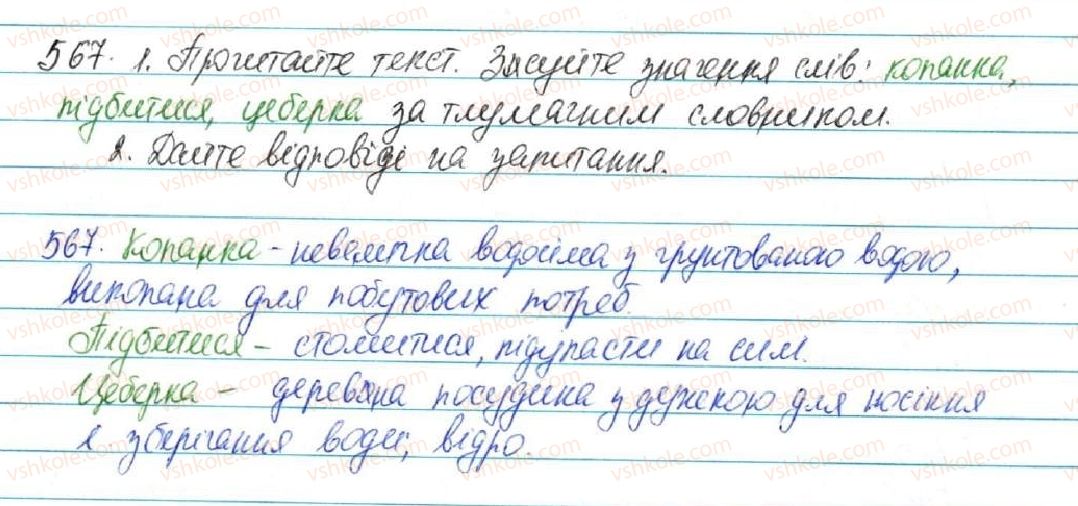 567. 1. Прочитайте текст. З'ясуйте значення слів: копанка,
підбитися, цеберка за тлумачним словником.
2. Дайте відповіді на запитання.
567. Копанка - невеличка водойма з грунтованою водою,
викопана для побутових потреб.
Підбитися – стомитися, підупасти на силі.
Цеберка – дерев'яна посудина з дужкою для носіння
і зберігання води, відро.